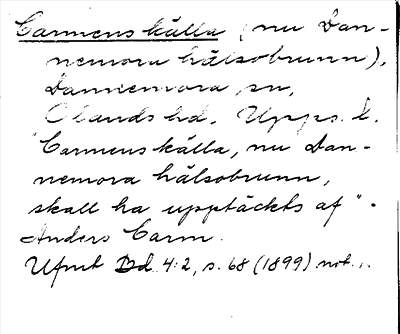 Carmens källa (nu Dan-
nemora hälsobrunn),
Dannemora sn,
Olands hd. Upps. l.
"Carmens källa, nu Dan-
nemora hälsobrunn,
skall ha upptäckts af".
Anders Carm.
Ufmt Bd 4:2, s. 68 (1899) not.